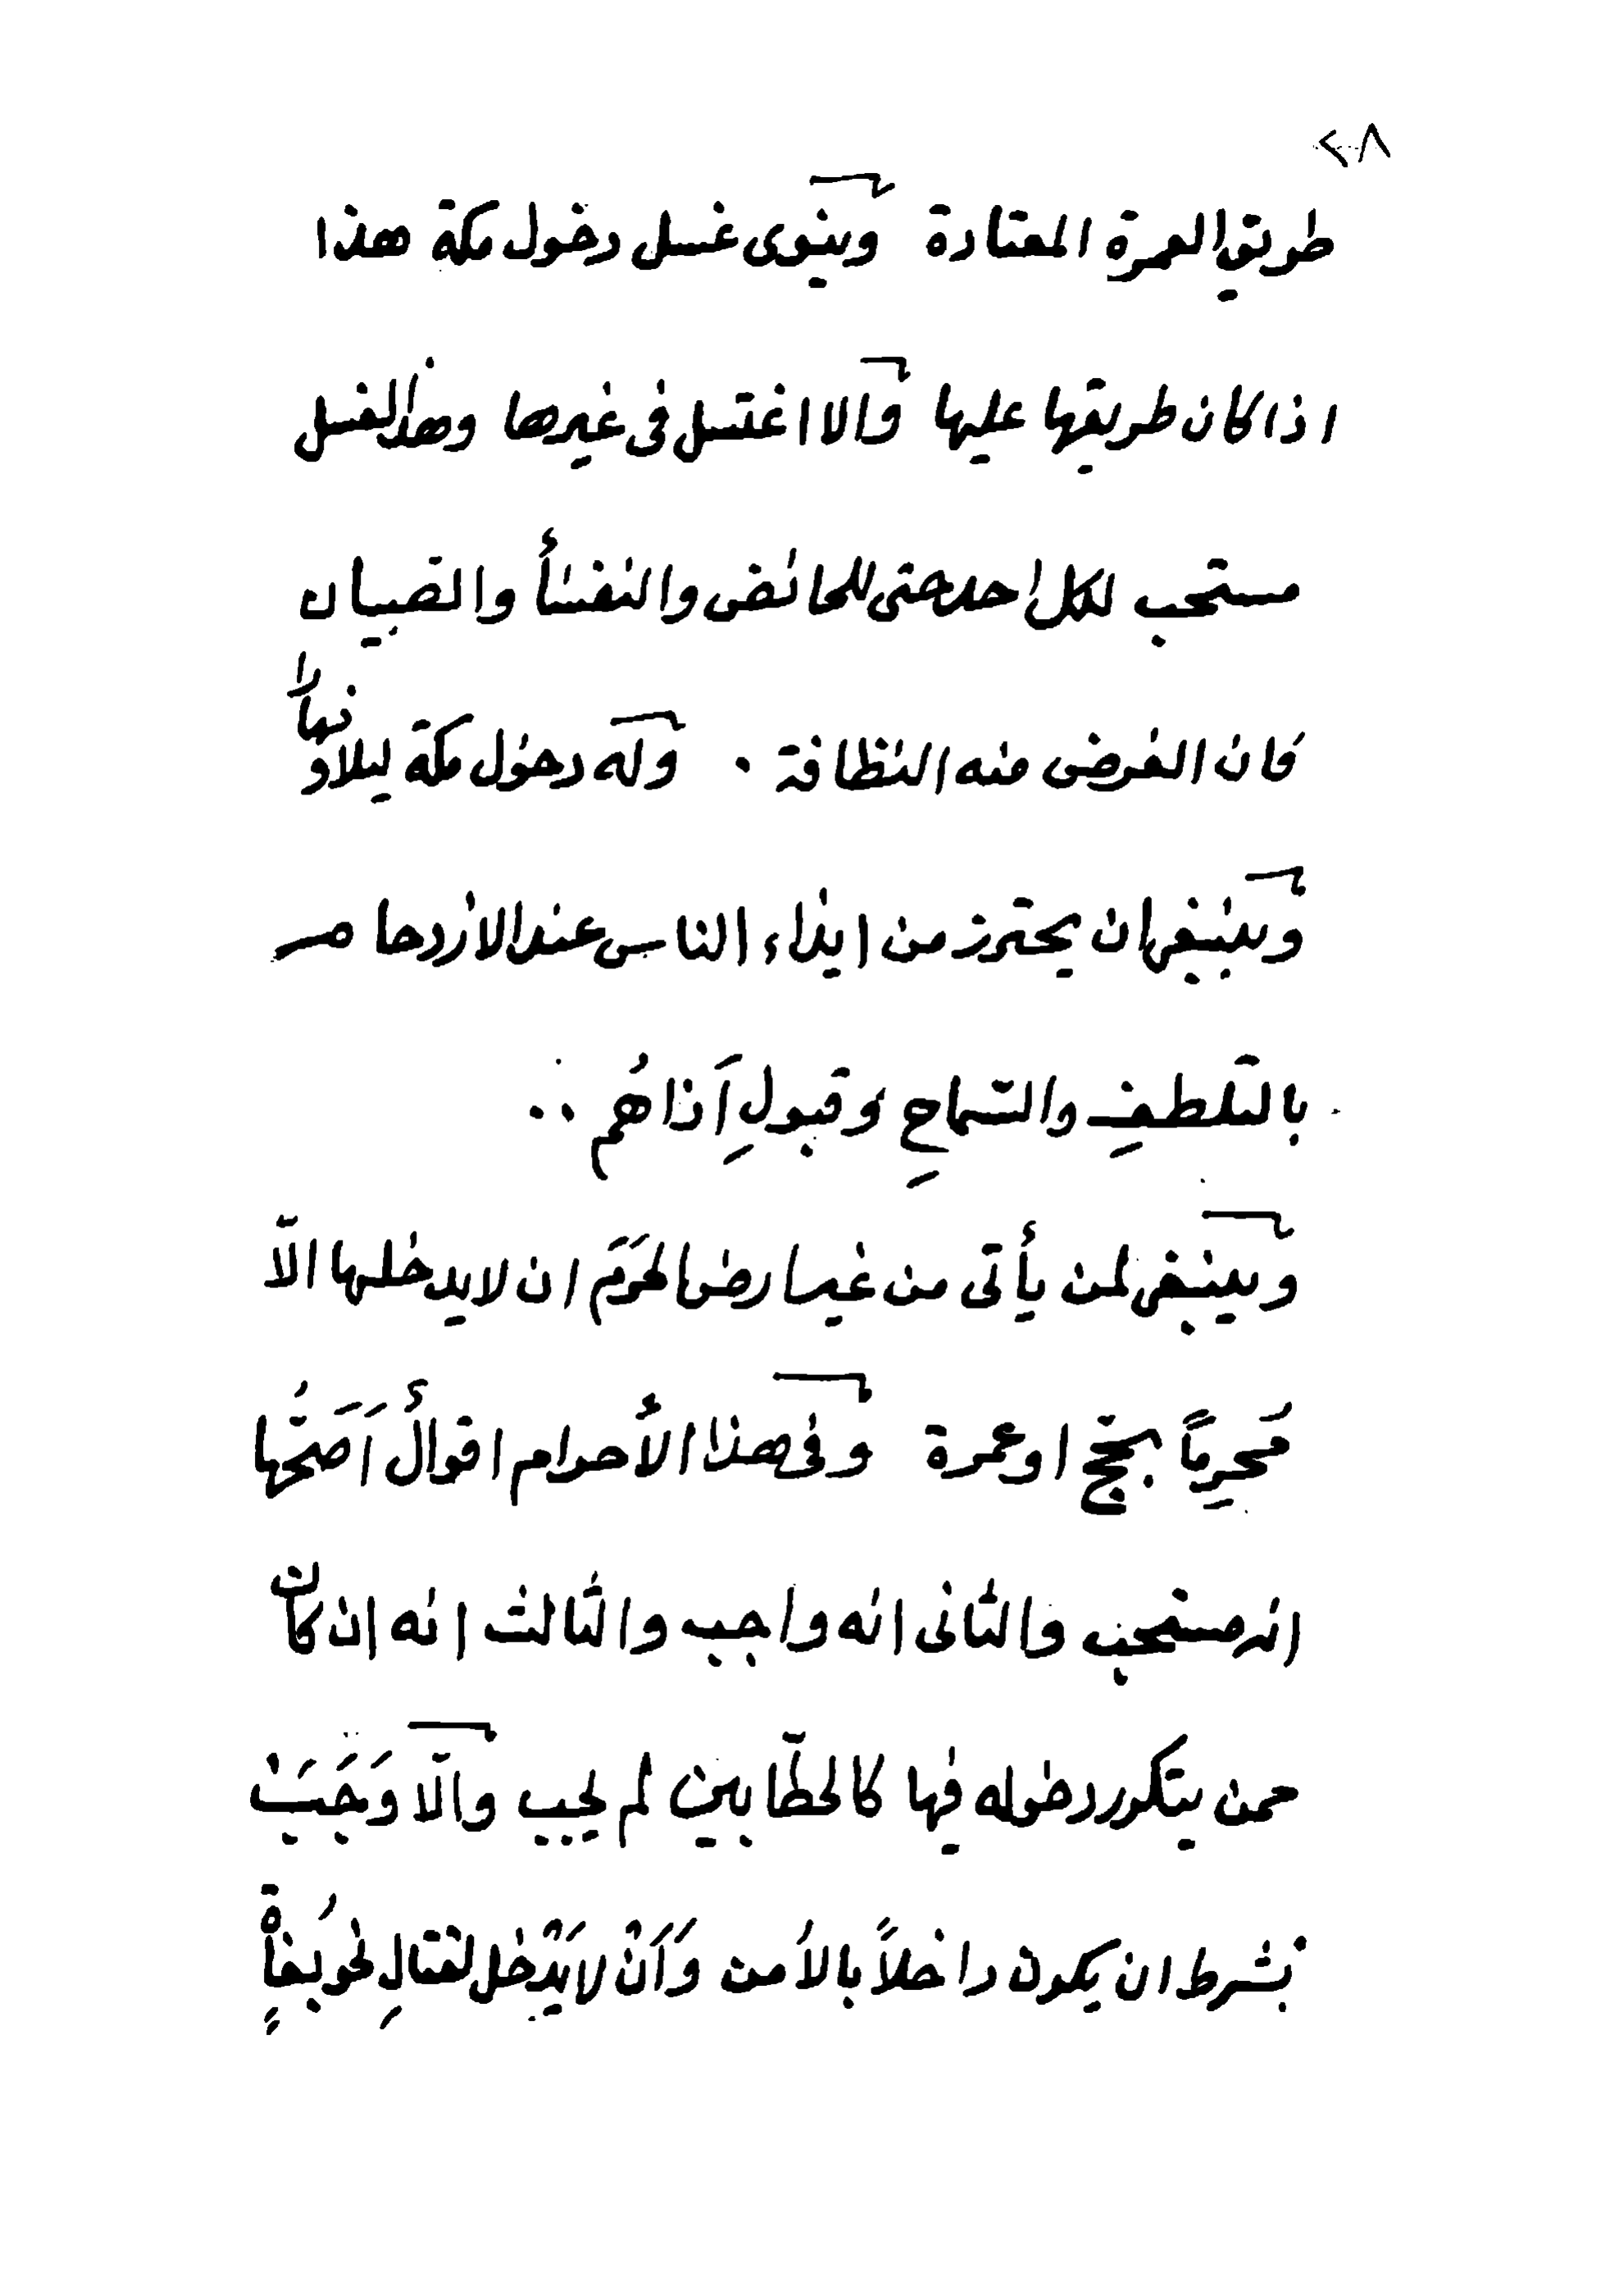 ٢٠٨
طريق العمرة المعتادة وينوى غسل دخول مكة هذا
اذا كان طريقها عليها والا اغتسل فى غيرها وهذا الغسل
مستحب لكل احد حتى للحائض والنفسأ والصبيان
فان الغرض منه النظافة . وله دخول مكة ليلا ونهاراً
وينبغى ان يحترز من ايذاء الناس عند الازدحام
بالتلطفِ والسّماحِ وقبولِ اَذاهُم ..
وينبغى لمن يأتى من غير ارض الحَرَم ان لا يدخلها الاّ
مُحرِماً بحجّ او عمرة وفى هذا الأحرام اقوالٌ اَصَحُّها
انه مستحب والثانى انه واجب والثالث انه ان كان
ممن يتكرر دخوله فيها كالحطّابين لم يجب والاّ وَجَبَتْ
بشرط ان يكون داخلاً بالأمن وَاَنْ لا يَدْخُل لقتالِ نحو بُغاةٍ